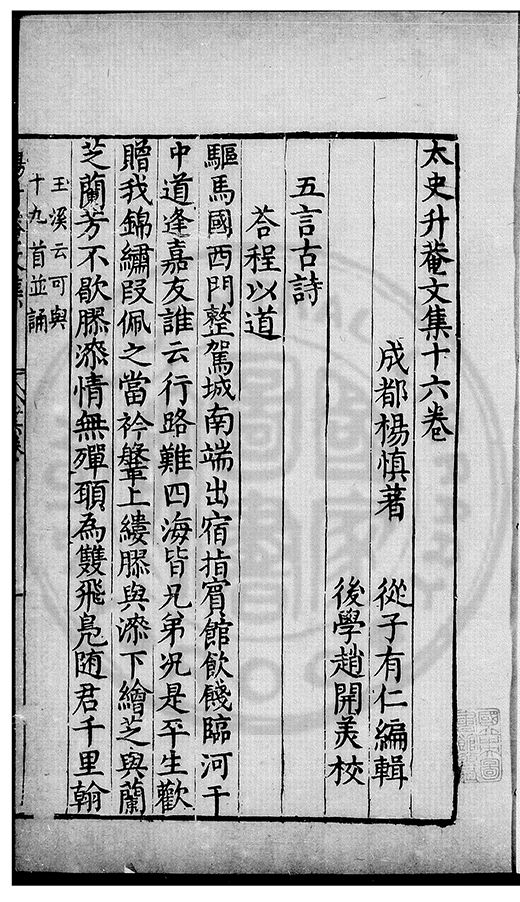 太史升菴文集十六卷
成都楊慎著　從子有仁編輯
後學趙開美校
五言古詩
荅程以道
驅馬國西門整駕城南端出宿指賓館飲餞臨河干
中道逢嘉友誰云行路難四海皆兄弟况是平生歡
贈我錦繡段佩之當衿鞶上縷膠與漆下繪芝與蘭
芝蘭芳不歇膠漆情無殫願為雙飛鳧随君千里翰
玉溪云可與
十九首並誦